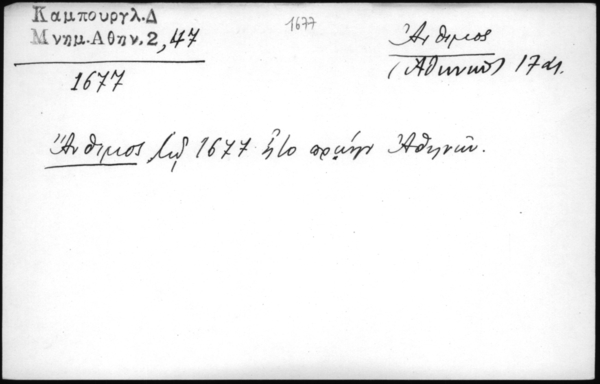 Καμπουργλ.Δ
Μνημ.Αθην.2,47
1677
1677
Ἄνθιμος
(Ἀθηνῶν) 17 αι.
Ἄνθιμος 1677 ἦτο πρώην Ἀθηνῶν.